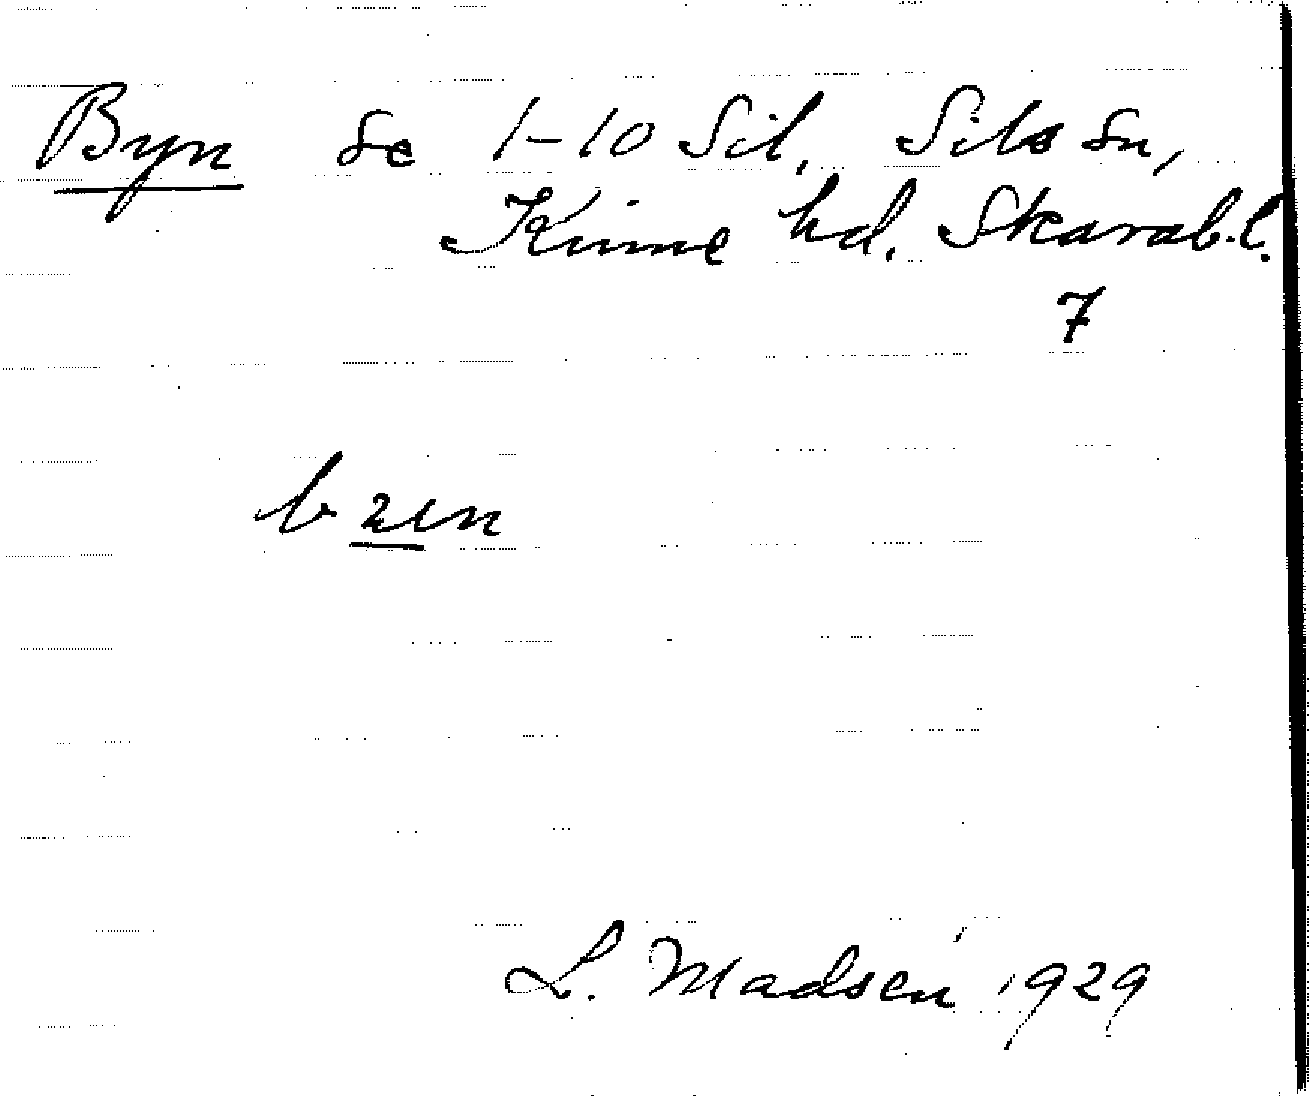 Byn se 1-10 Sil, Sils sn,
Kinne hd. Skarab.l.
7
L. Madsén 1929